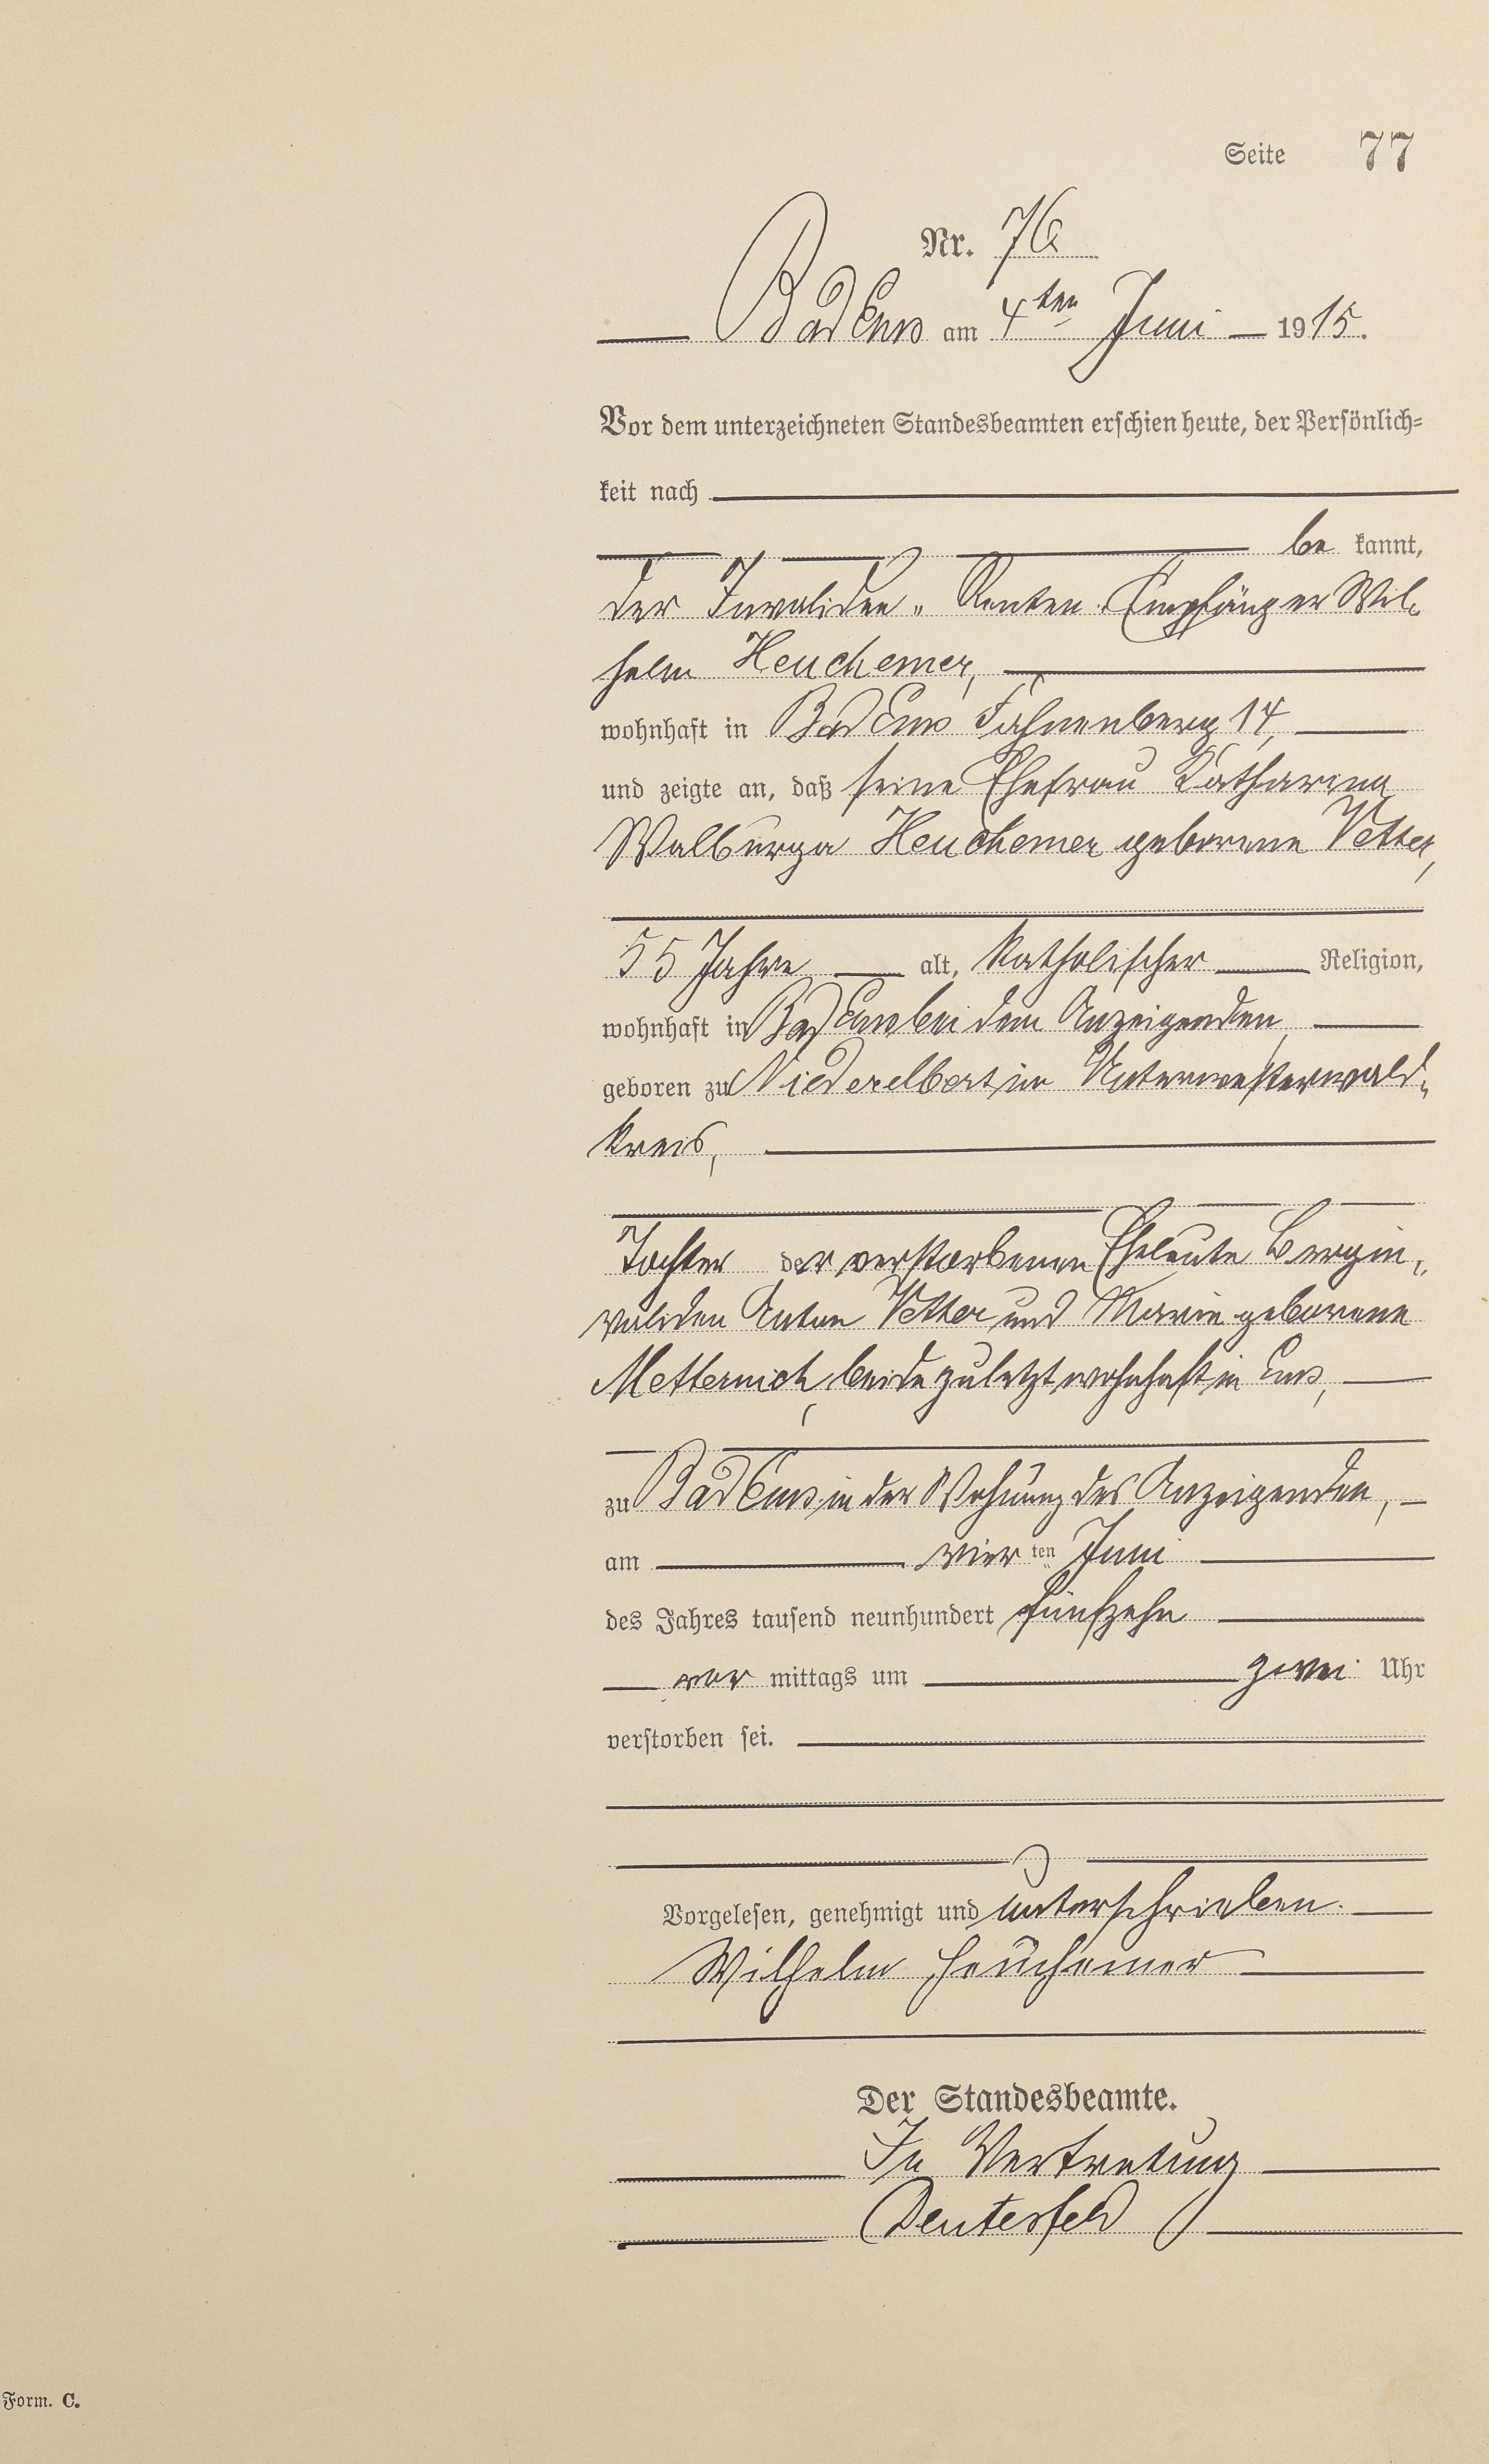 Seite 77
Nr. 76
Bad Ems am 4ten Juni 1915.
Vor dem unterzeichneten Standesbeamten erschien heute, der Persönlich-
keit nach
be kannt,
der Invaliden-Renten-Empfänger Wil-
helm Heuchemer,
wohnhaft in Bad Ems Fahnenberg 14,
und zeigte an, daß seine Ehefrau Katharina
Walburga Heuchemer geborene Vetter,
55 Jahre alt, katholischer Religion,
wohnhaft in Bad Ems bei dem Anzeigenden,
geboren zu Niederelbert im Unterwesterwald-
kreis,
Tochter der verstorbenen Eheleute Bergin-
validen Anton Vetter und Marie geborene
Metternich, beide zuletzt wohnhaft in Ems,
zu Bad Ems in der Wohnung des Anzeigenden,
am vier ten Juni
des Jahres tausend neunhundert fünfzehn
vor mittags um zwei Uhr
verstorben sei.
Vorgelesen, genehmigt und unterschrieben.
Wilhelm Heuchemer
Der Standesbeamte.
In Vertretung
Deutesfeld
Form. C.